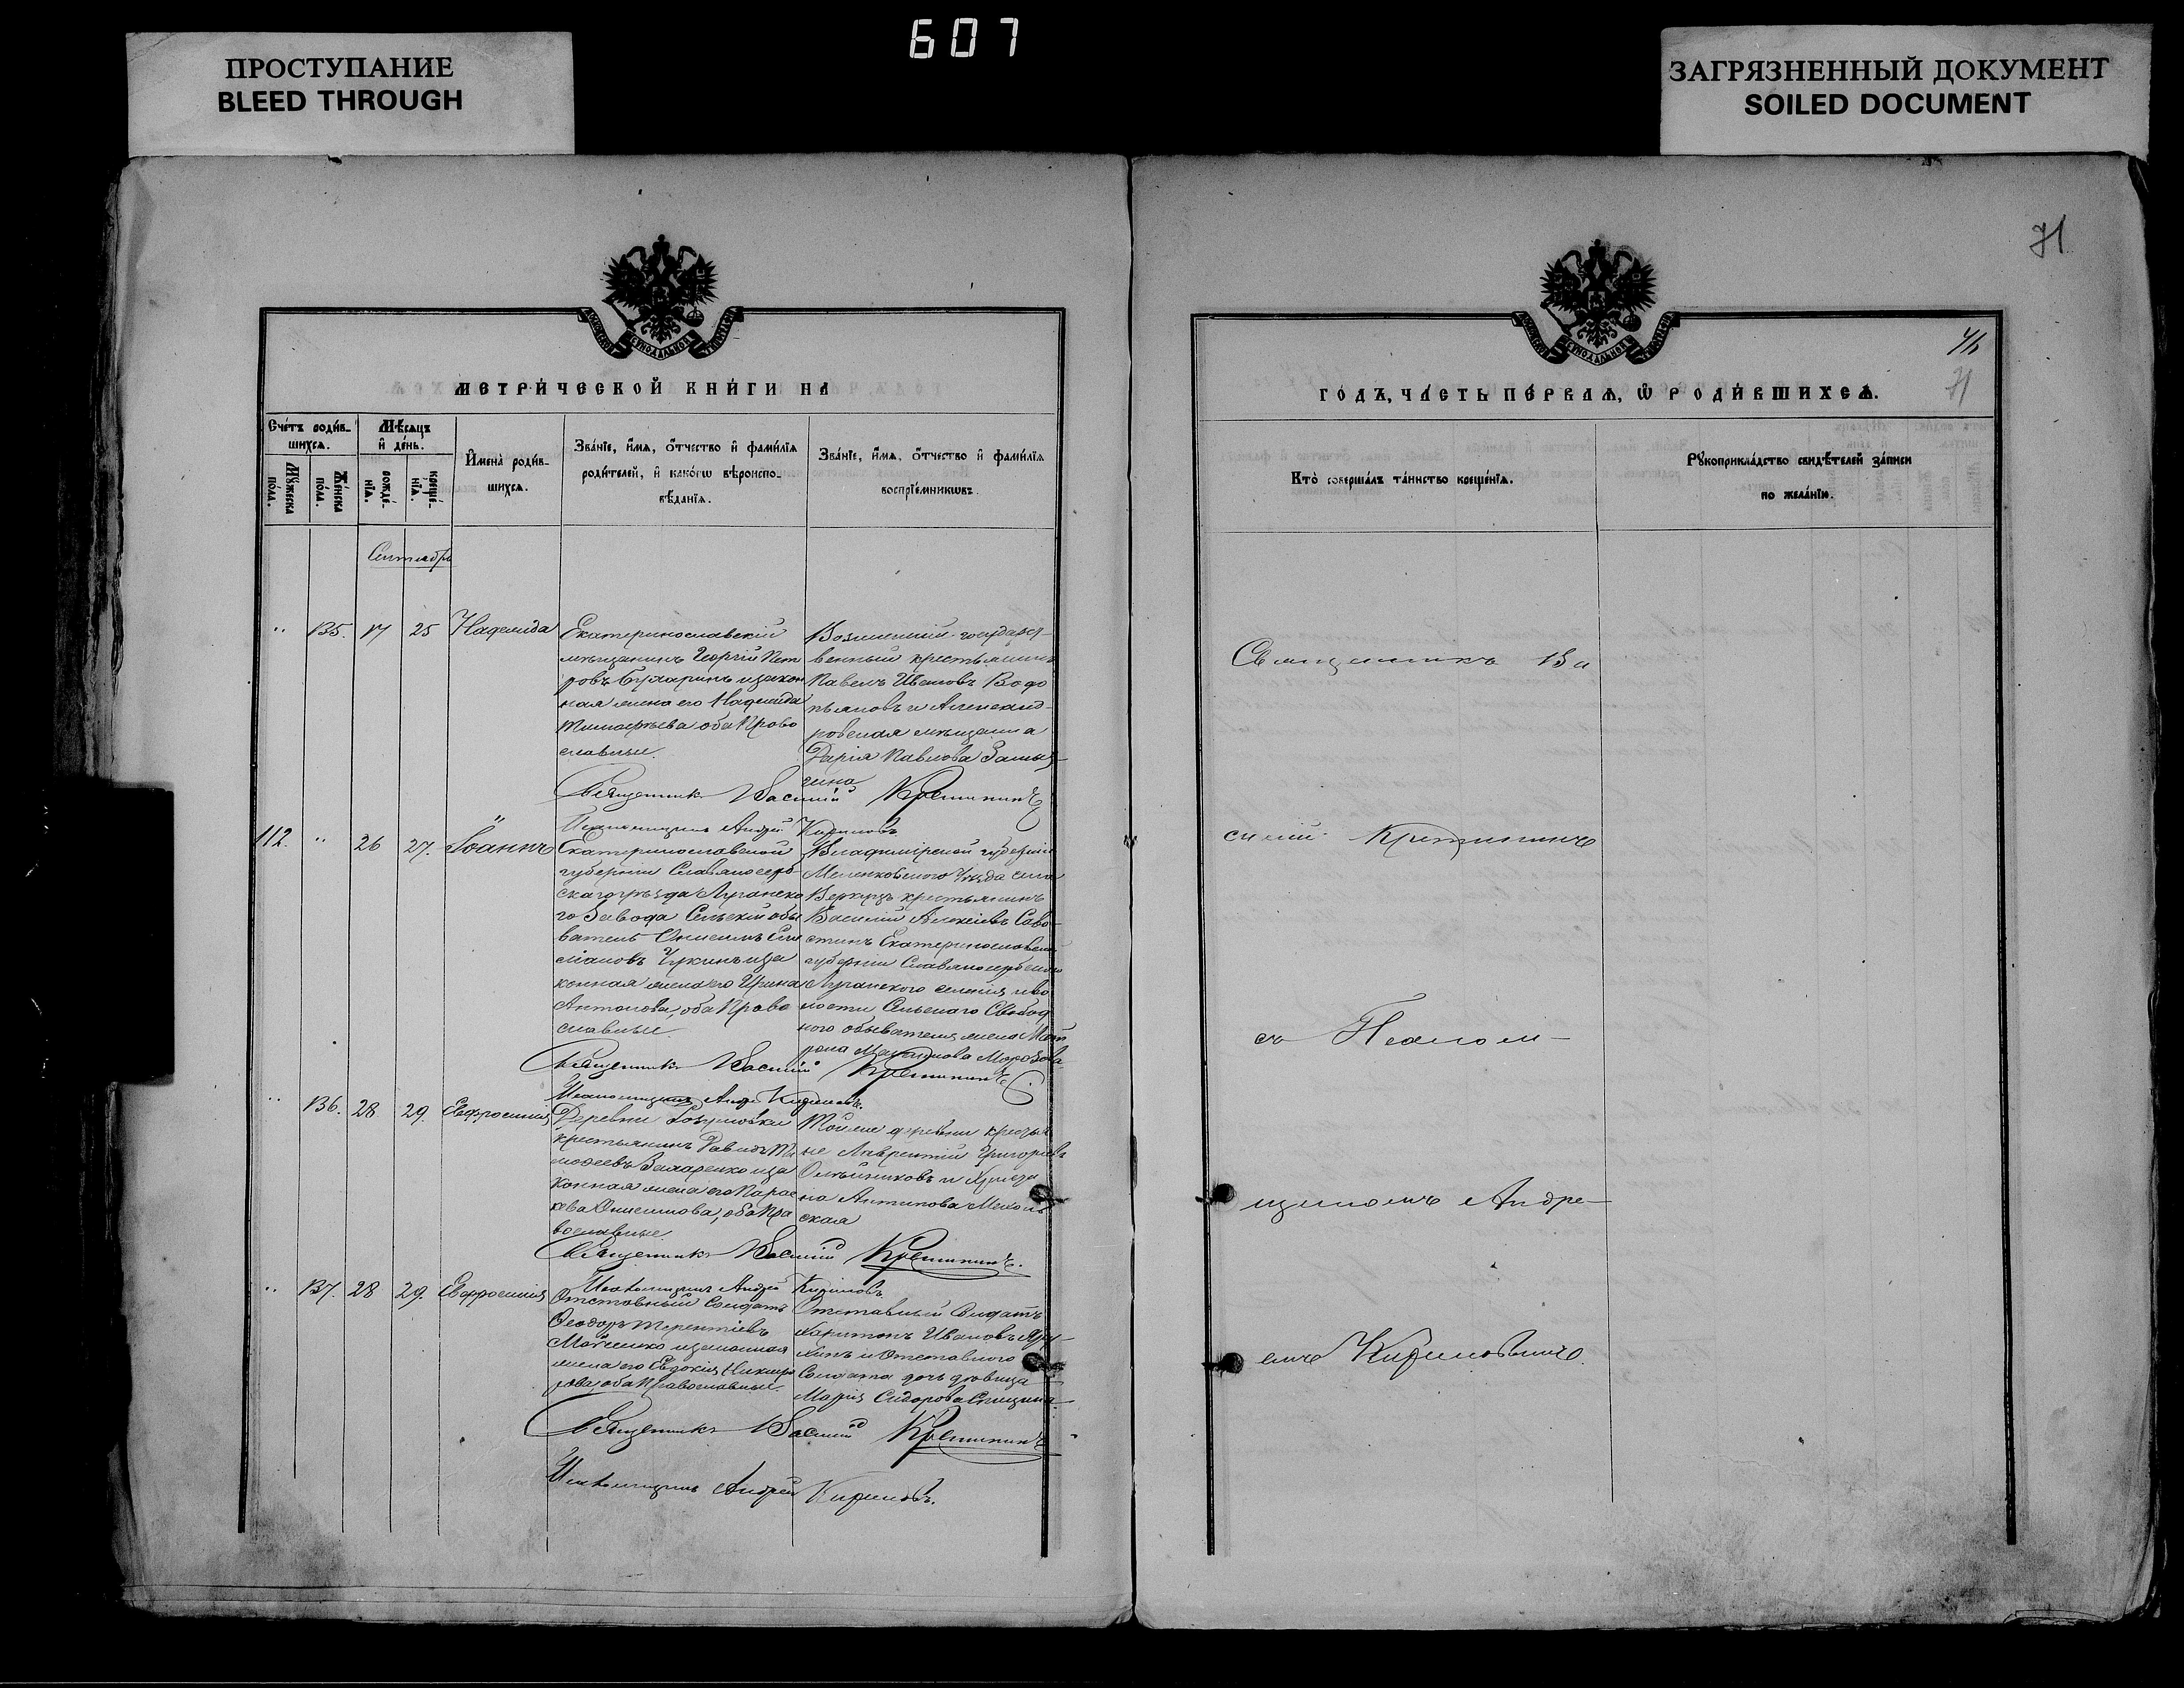 607
ПРОСТУПАНИЕ
BLEED THROUGH
ЗАГРЯЗНЕННЫЙ ДОКУМЕНТ
SOILED DOCUMENT
71
МЕТРИ́ЧЕСКОЙ КНИ́ГИ НА
Сче́тъ роди́в-
шихсѧ.
Мѣ́сѧцъ
и҆ де́нь.
И҆мена̀ роди́в-
шихсѧ.
Зва́нїе, и҆́мѧ, ѻ҆́тчество и҆ фами́лїѧ
роди́телей, и҆ како́гѡ вѣроиспо-
вѣ́данїѧ.
Зва́нїе, и҆́мѧ, ѻ҆́тчество и҆ фами́лїѧ
воспрїе́мникѡвъ.
Мꙋ́жеска
по́ла.
Же́нска
по́ла.
рожде́-
нїѧ.
креще́-
нїѧ.
Сентябрь
" 135. 17 25 Надежда
Екатеринославскій
мѣщанинъ Георгій Пет
ровъ Бухаринъ изакон
ная жена его Надежда
Тимофѣева оба Право
славные.
государс-
венный крестьянинъ
Павелъ Ивановъ Водо
пьяновъ и Александ-
ровская мѣщанка
Дарія Павлова
Священникъ Василій Кретининъ
Псаломщикъ Андрей Кириловъ
112. " 26 27. Іоаннъ
Екатеринославской
губерніи Славяносерб
скаго уѣзда Луганска
го Завода Сельскій обы
ватель Онисимъ
Чукинъ иза
конная жена его Ирина
Антонова, оба Право
славные
Владимірской губерніи
Меленковского Уѣзда села
крестьянинъ
Василій Алексіевъ Саво
стинъ Екатеринославской
губерніи Славяносербского
Луганского селенія иво
лости Сельского Свобод
ного обывателя жена Мат
рона Морозова
Священникъ Василій Кретининъ
Псаломщикъ Андрей Кириловъ.
" 136. 28 29. Евфросинія
Деревни
крестьянинъ Давидъ Ти
мофеевъ Захаренко иза
конная жена его Парас
кева Онисимова, оба Пра
вославные.
Тойже деревни крестья
не Лаврентій Григорьевъ
Олѣйниковъ и
на Антипова
ская
Священникъ Василій Кретининъ.
Псаломщикъ Андрей Кириловъ
" 137. 28 29. Евфросинія
Отставный Солдатъ
Ѳеодоръ Терентіевъ
изаконная
жена его Евдокія Никифо
рова, оба Православные.
Отставный Солдатъ
Харитонъ Ивановъ
и Отставного
Солдата дочь дѣвица
Марія Сидорова
Священникъ Василій Кретининъ
Псаломщикъ Андрей Кириловъ.
ГО́ДЪ, ЧА́СТЬ ПЕ́РВАѦ, Ѽ РОДИ́ВШИХСѦ.
71
Кто̀ соверша́лъ та́инство креще́нїѧ.
Рꙋкоприкла́дство свидѣ́телей за́писи
по жела́нїю.
Священникъ Ва
силій Кретининъ
съ Псалом-
щикомъ Андре-
емъ Кириловымъ.